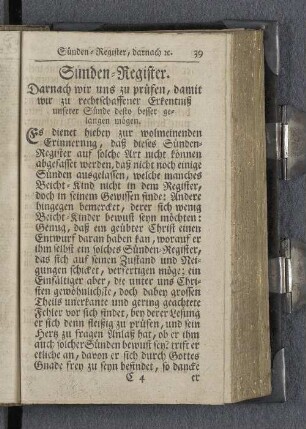 Sünden-Register, darnach ꝛc. 39
Sünden-Register.
Darnach wir uns zu prüfen, damit
wir zu rechtschaffener Erkentniß
unserer Sünde desto besser ge-
langen mögen.
Es dienet hiebey zur wolmeinenden
Erinnerung, daß dieses Sünden-
Register auf solche Art nicht können
abgefasset werden, daß nicht noch einige
Sünden ausgelassen, welche manches
Beicht-Kind nicht in dem Register,
doch in seinem Gewissen findet: Andere
hingegen bemercket, derer sich wenig
Beicht-Kinder bewust seyn möchten:
Genug, daß ein geübter Christ einen
Entwurf daran haben kan, worauf er
ihm selbst ein solches Sünden-Register,
das sich auf seinen Zustand und Nei-
gungen schicket, verfertigen möge: ein
Einfältiger aber, die unter uns Chri-
sten gewöhnlichste, doch dabey grossen
Theils unerkante und gering geachtete
Fehler vor sich findet, bey derer Lesung
er sich denn fleissig zu prüfen, und sein
Hertz zu fragen Anlaß hat, ob er ihm
auch solcher Sünden bewust sey? trift er
etliche an, davon er sich durch Gottes
Gnade frey zu seyn befindet, so dancke
C 4 er